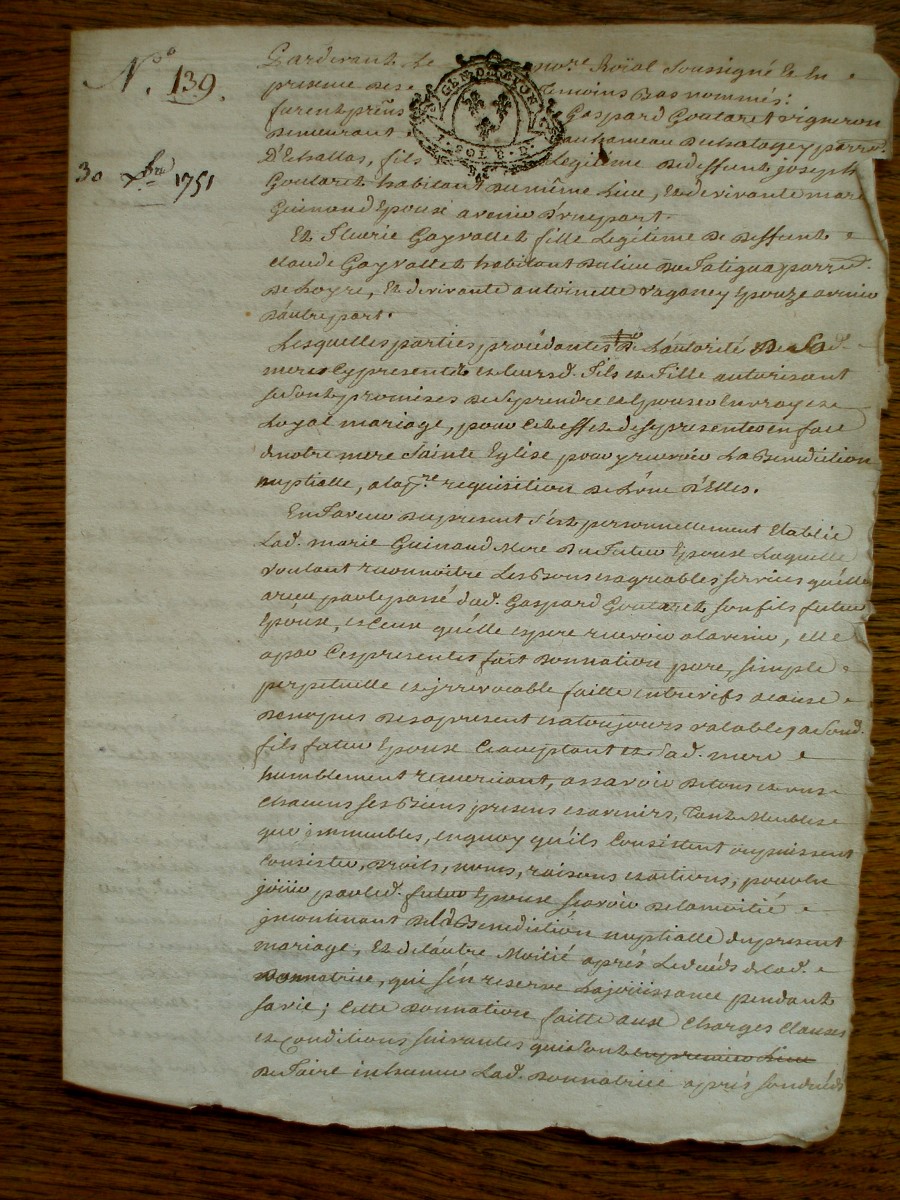 No. 139.
30 xbre 1751
GEN. DE LYON
SOLS
Pardevant Le nore. Roïal Soussigné Et En
presence des temoins Bas nommés:
furent prêns Gaspard Goutaret vigneron
Demeurant au hameau Du parroisse
D'Echallas, fils Legitime De deffunt joseph
Goutaret habitant Du même Lieu, Et de vivante marie
Guinand Epouse avenir D'une part.
Et Fleurie Gayvallet fille Legitime De Deffunt
claude Gayvallet habitant Du lieu De parrse.
De Loyre, Et de vivante antoinette vaganey Epouze avenir
D'autre part.
Lesquelles parties, procédantes De L'autorité De Lad.
mere Cy presente et Leursd. Fils et Fille autorisant
se sont promises De Se prendre et Epouser En vray et
Loyal mariage, pour Cet effet de se presenter en face
de notre mere Sainte Eglise pour y recevoir La Benediction
nuptialle, a la pre. requisition De L'une D'Elles.
En Faveur Du present s'est personnellement Etablie
Lad. marie Guinand Mere Du futur Epoux Laquelle
voulant reconnoître Les Bons et agreables services qu'elle
a reçu par le passé dud. Gaspard Goutaret son fils futur
Epoux, et Ceux qu'elle espere recevoir a l'avenir, elle
a par Ces presentes fait Donnation pure, simple
perpetuelle et irrevocable faitte entre vifs a cause
De nopces Des a present et a toujours valable, a Sond.
fils futur Epoux acceptant et Sad. mere
humblement remerciant, assavoir De tous et un
Chacuns Ses Biens presens et avenirs, Tant Meubles
que immeubles, en quoy qu'ils Consistent ou puissent
Consister, Droits, noms, raisons et actions, pour En
joüir par led. futur Epoux sçavoir De la moitié
incontinant La Benediction nuptialle du present
mariage, Et de L'autre Moitié aprés Le decéds de Lad.
Donnatrice, qui s'en reserve La joüissance pendant
sa vie; Cette Donnation faitte aux Charges Clauses
et Conditions suivantes qui sont en premier Lieu
De Faire inhumer Lad. Donnatrice aprés son decéds